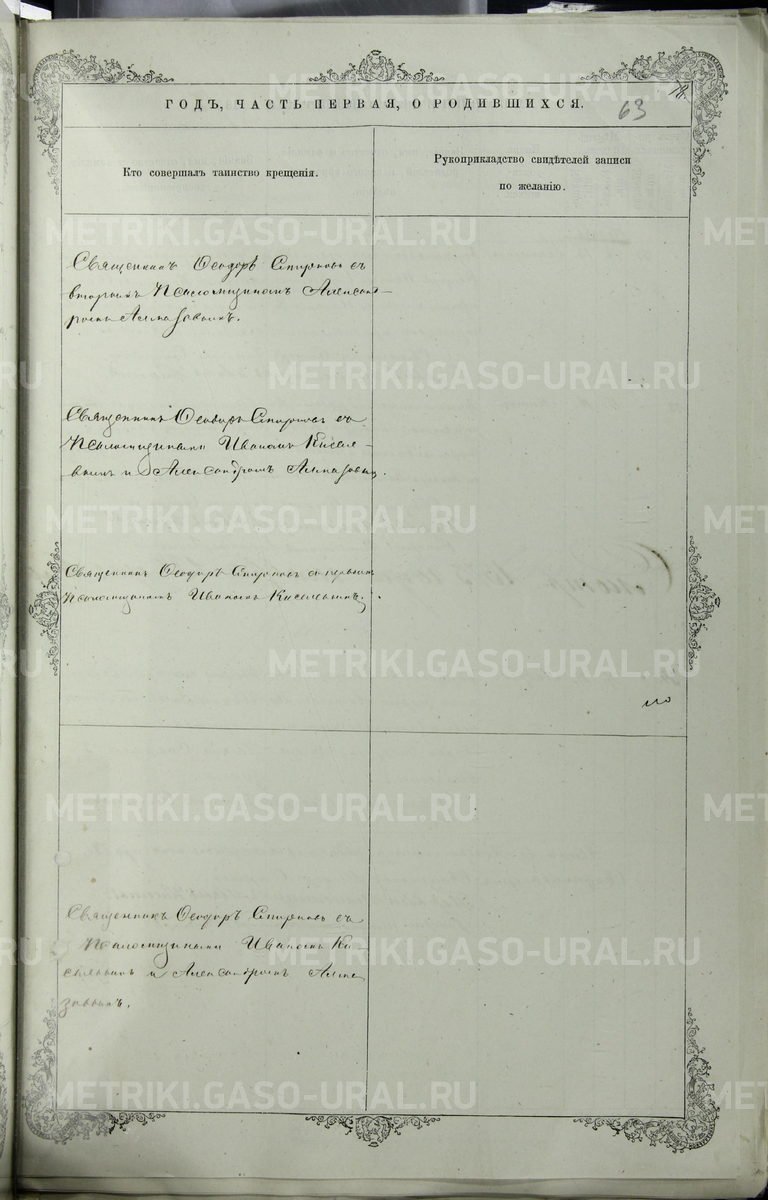 ГОДЪ, ЧАСТЬ ПЕРВАЯ, О РОДИВШИХСЯ.
63
Кто совершалъ таинство крещенія.
Рукоприкладство свидѣтелей записи
по желанію.
Священникъ Ѳеодоръ Смирновъ съ
вторымъ Псаломщикомъ Александ-
ромъ Алмазовымъ.
Священникъ Ѳеодоръ Смирновъ съ
Псаломщиками Иваномъ Кисел-
вымъ и Александромъ Алмазовым
Священникъ Ѳеодоръ Смирновъ съ первымъ
Псаломщикомъ Иваномъ Киселевымъ.
Священникъ Ѳеодоръ Смирновъ съ
Псаломщиками Иваномъ Ки-
селевымъ и Александромъ Алма
зовымъ.
METRIKI.GASO-URAL.RU